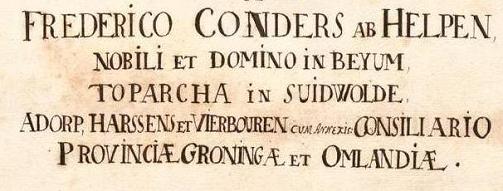 FREDERICO CONDERS AB HELPEN,
NOBILI ET DOMINO IN BEYUM,
TOPARCHA IN SUIDWOLDE,
ADORP, HARSSENS ET VIERBOUREN CUM ANNEXIS. CONSILIARIO
PROVINCIÆ GRONINGÆ ET OMLANDIÆ.